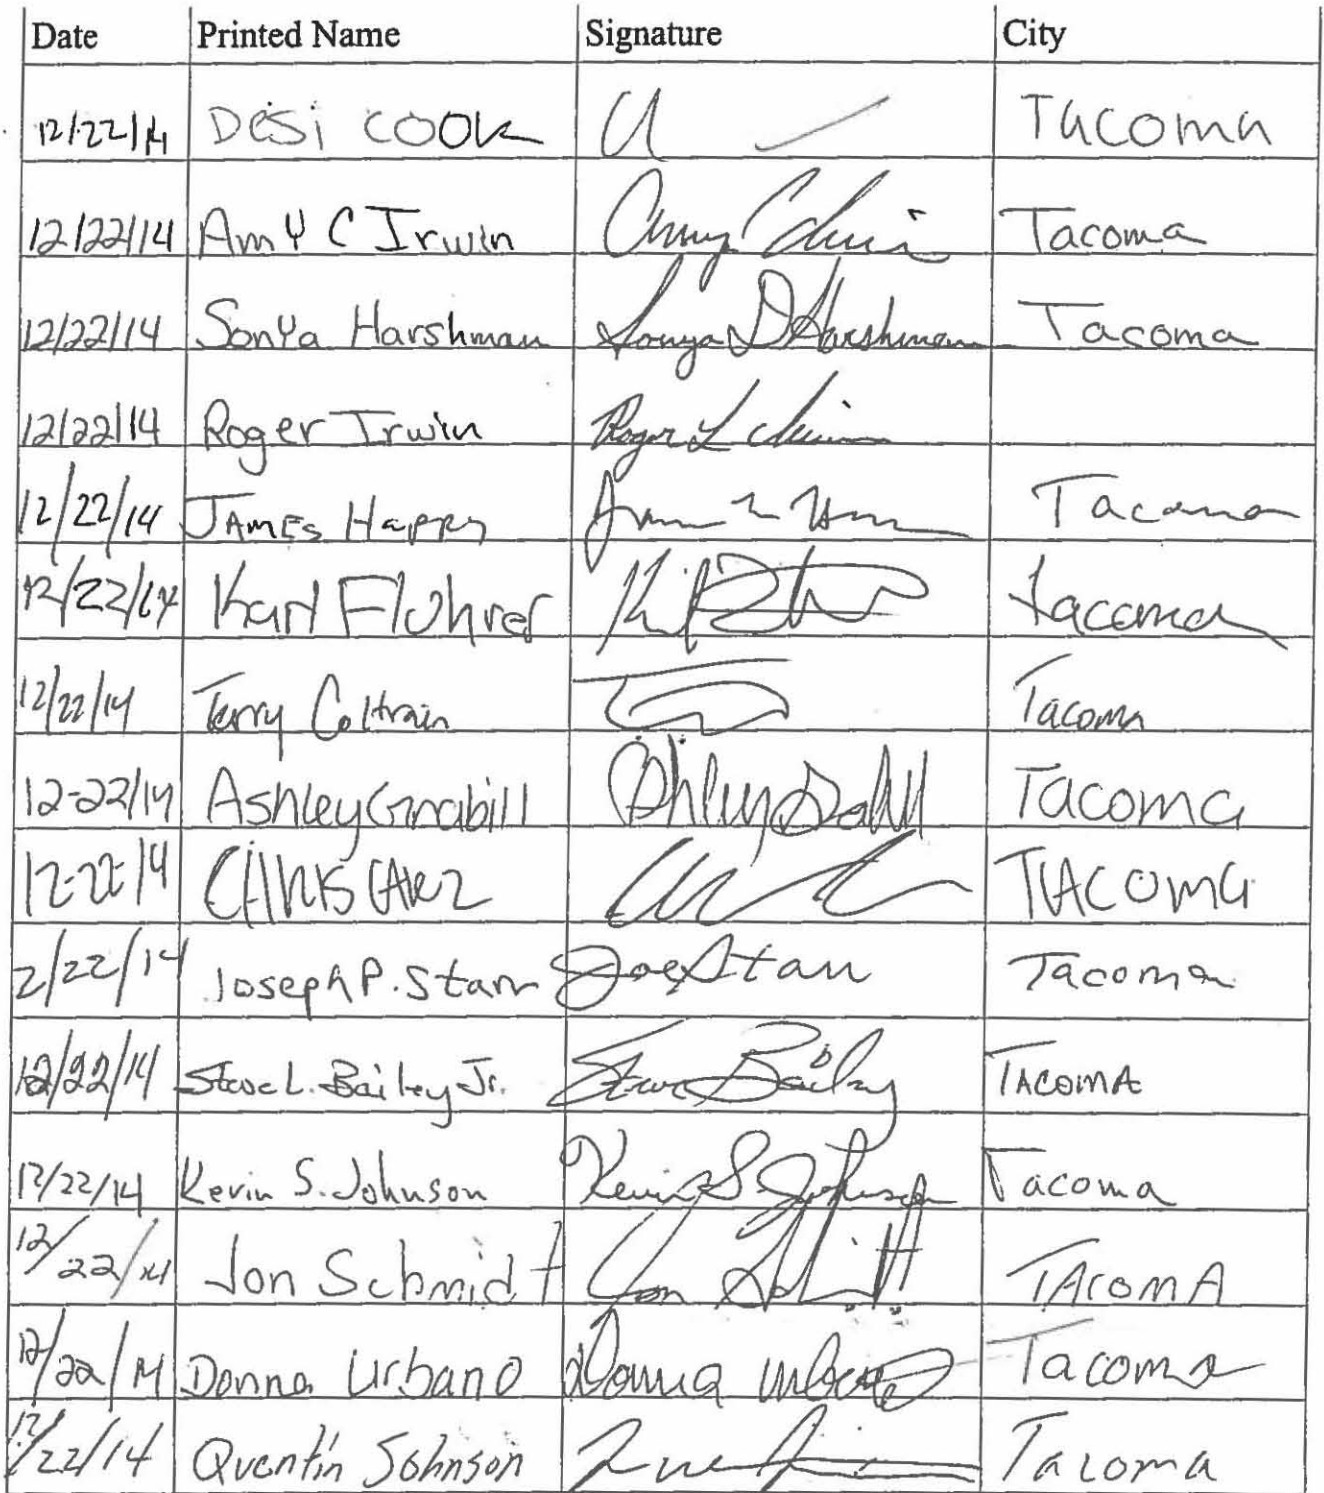 Date Printed Name Signature City
12/22/14 Desi Cook Tacoma
12/22/14 Amy C Irwin Amy C Irwin Tacoma
12/22/14 Sonya Harshman Sonya D Harshman Tacoma
12/22/14 Roger Irwin Roger L Irwin
12/22/14 JAMES HAPPY Tacoma
12/22/14 Karl Flohrer Tacoma
12/22/14 Terry Coltrain Tacoma
12-22/14 Ashley Grabill Tacoma
12-22-14 CHRIS TACOMA
2/22/14 Joseph P. Starr Joe Starr Tacoma
12/22/14 Steve L. Bailey Jr. Steve Bailey TACOMA
12/22/14 Kevin S. Johnson Kevin S. Johnson Tacoma
12/22/14 Jon Schmidt Jon Schmidt TACOMA
12/22/14 Donna Urbano Donna Urbano Tacoma
12/22/14 Quentin Johnson Tacoma